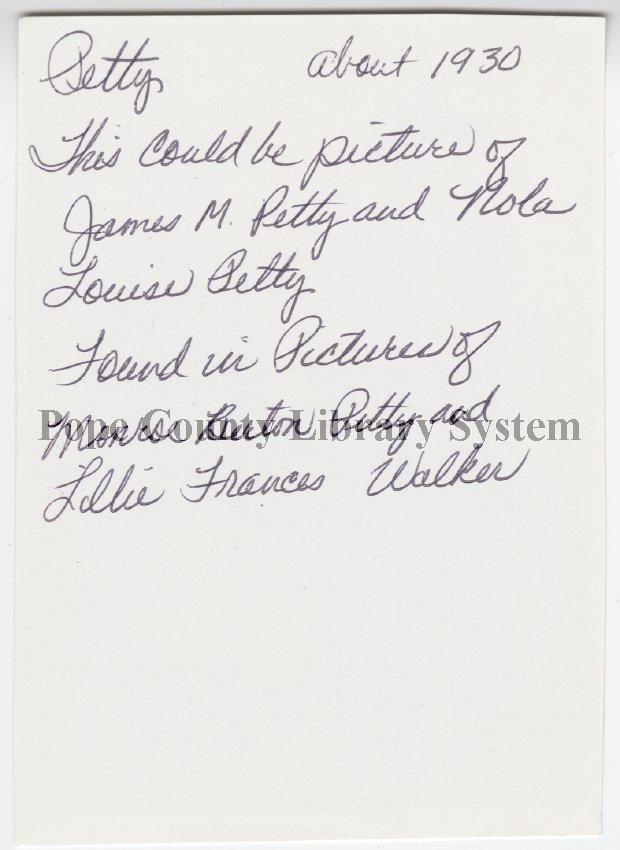 Petty about 1930
This could be picture of
James M. Petty and Nola
Louise Petty
Found in Pictures of
Monroe Burton Petty and
Pope County Library System
Lillie Frances Walker